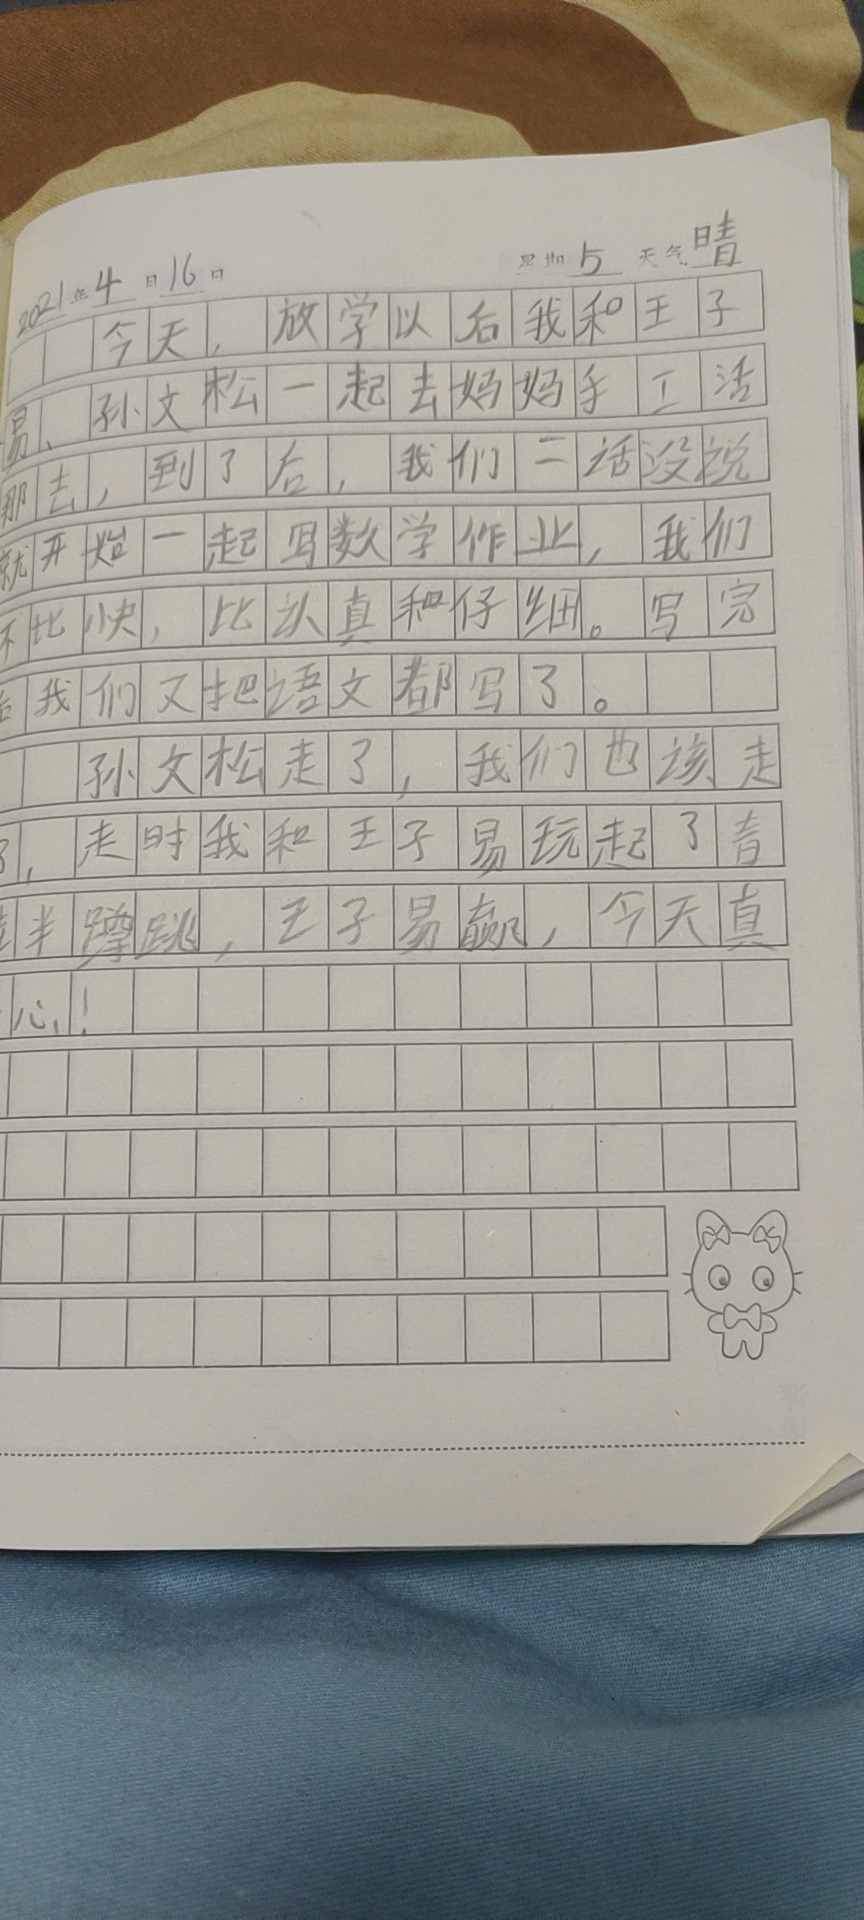 2021年4月16日 星期5 天气晴
今天，放学以后我和王子
易、孙文松一起去妈妈手工活
那去，到了后，我们二话没说
就开始一起写数学作业，我们
不比快，比认真和仔细。写完
后我们又把语文都写了。
孙文松走了，我们也该走
了，走时我和王子易玩起了青
蛙半蹲跳，王子易赢，今天真
心！